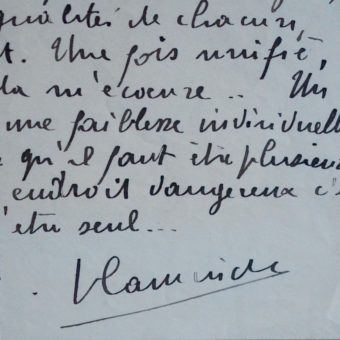 qualités de chacun,
t. Une fois unifié,
la m'écoeure.. Un
une faiblesse individuelle
qu'il faut être plusieurs
endroit dangereux c'
'être seul...
Vlaminck